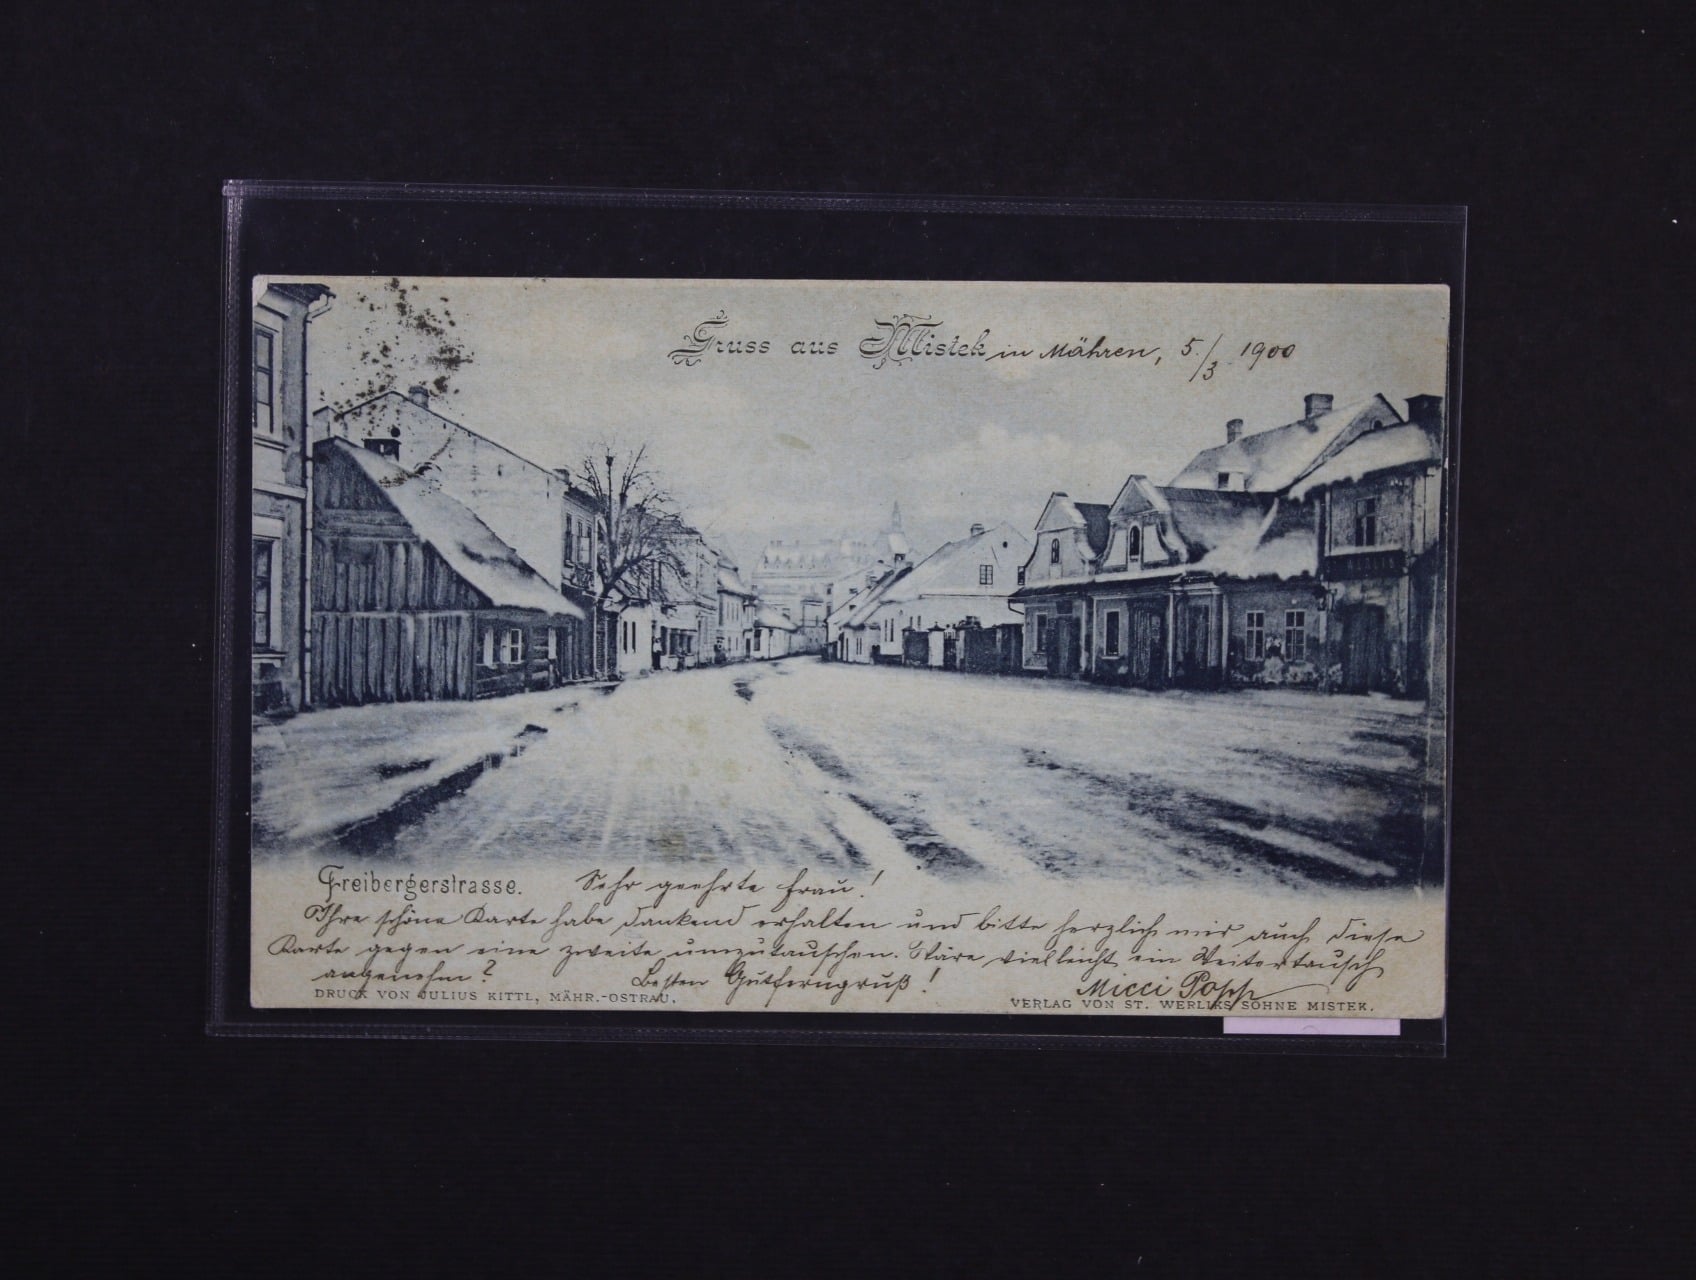 Gruss aus Mistek in Mähren, 5./3. 1900
Freibergerstrasse.
Sehr geehrte Frau!
Ihre schöne Karte habe dankend erhalten und bitte herzlich mir auch diese
Karte gegen eine zweite umzutauschen. Wäre vielleicht ein Weitertausch
angenehm? Besten Gutferngruß! Micci Popp
DRUCK VON JULIUS KITTL, MÄHR.-OSTRAU.
VERLAG VON ST. WERLIKS SÖHNE MISTEK.